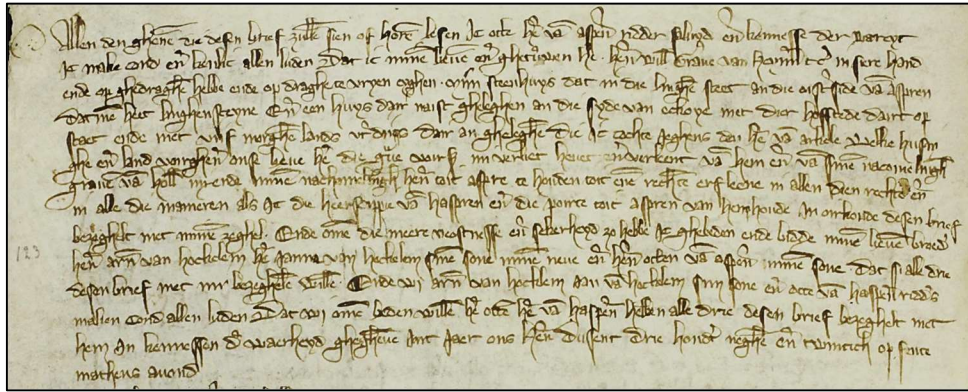 Allen den ghene die desen brief zulle sien of hore lesen Ic otte he va asperen ridder saluyd en kennesse der wareyt
Ic make cond en kenlic allen luden dat ic mine lieve en ghetruwen he hern will Grave van in sere hand
ende op ghedraghe hebbe ende op draghe te vryen eyghen steenhuys dat in die linghe steet an die oist side va aspren
datme heit linghensteyne En een huys dair naist gheleghen an die syde van met dier hofstede dairt op
staet ende met vijf morghe lands dair an gheleghe die Ic cochte jeghens den he va arkele welke husin
ghe en land onse lieve he die grave mi verliet hevet en verkent va hem en va sine nacomelingh
grave va holl mi ende mine nacomelingh hern toit aspre te houden toit ene rechte erf leene in allen dien rechte en
in alle die manieren als Ic die heerscippie va haspren en die poirte toit aspren van hem houde In orkonde desen brief
bezeghelt met mine zeghel Ende ome die meere vestnisse en sekerheyd zo hebbe Ic ghebeden ende bidde mine lieve broed
hern arn van heckelem he Janne van heckelem sine sone mine neve en hern otten va aspern mine sone dat si alle drie
desen brief met mi bezeghele wille Ende wi arn van heckelem Jan va heckelem sijn sone en otte va haspern ridders
maken cond allen luden Dat wi ome beden wille he otte he va haspern hebben alle drie desen brief bezeghelt met
hem In kennessen der waerheyd ghegheven Int Jaer ons heren dusent drie hondert neghe en twintich op sinte
matheus avond
123